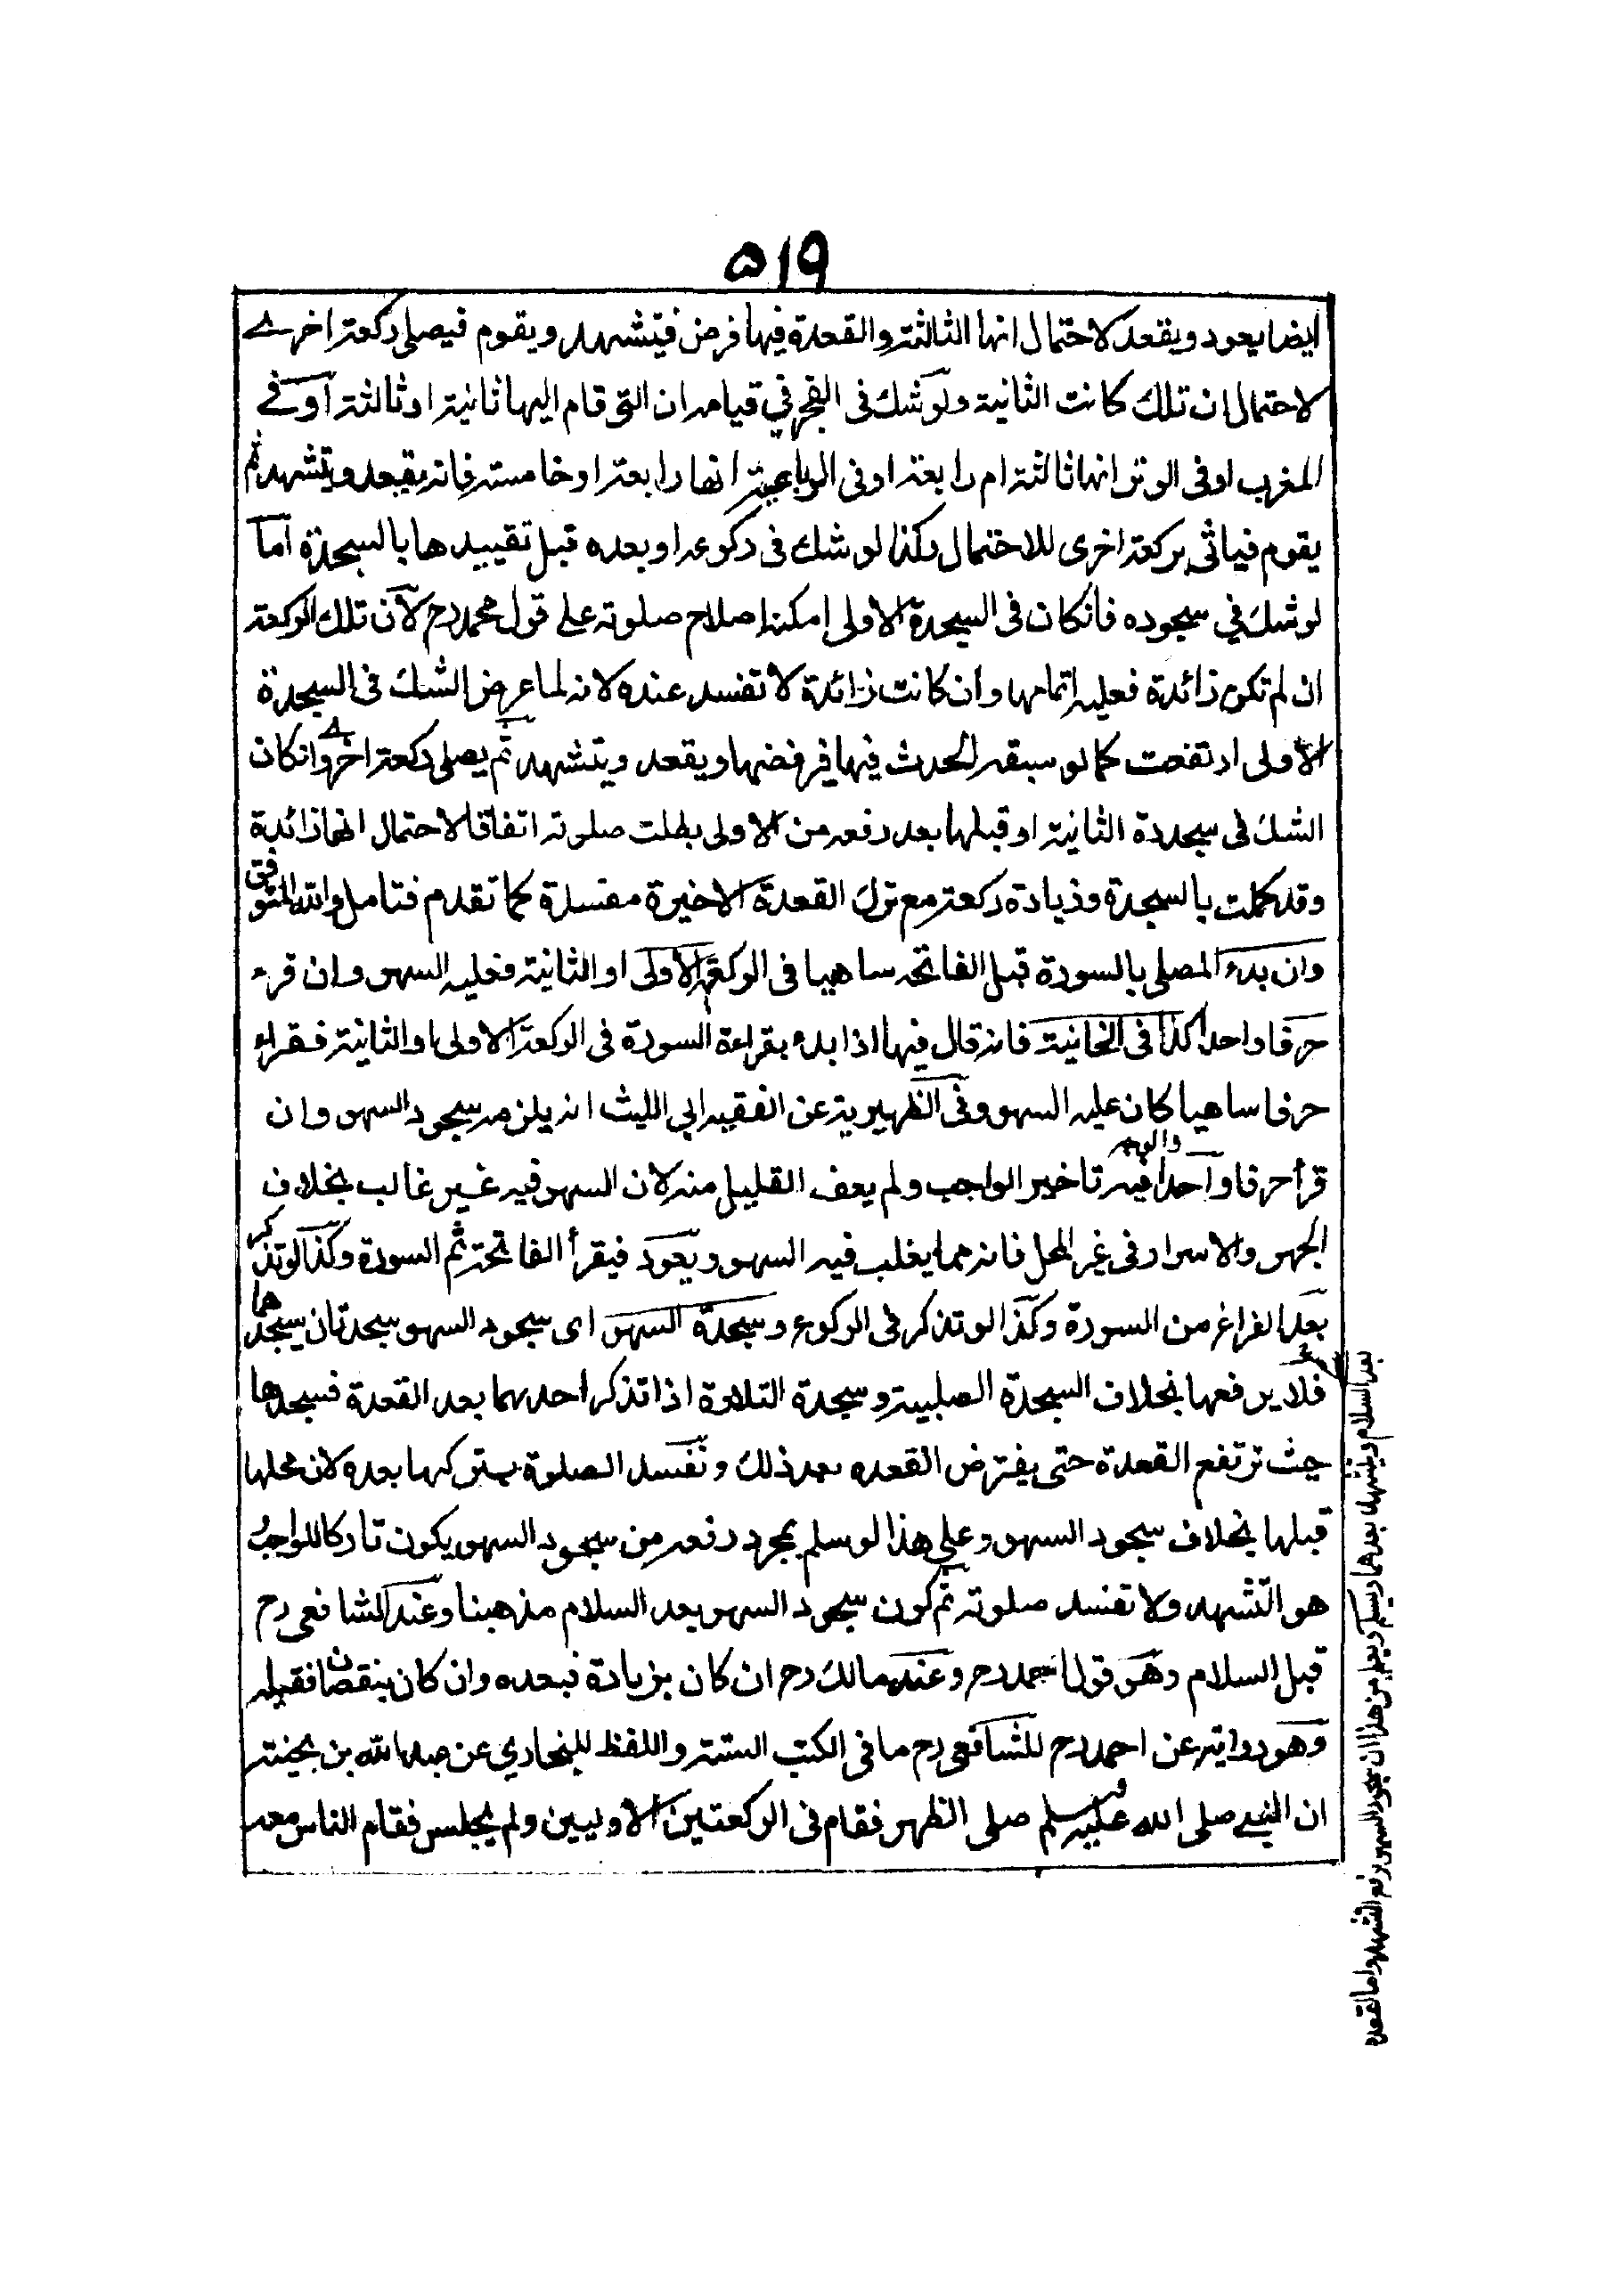 ٥١٩
ايضا يعود ويقعد لاحتمال انها الثالثة والقعدة فيها فرض فيتشهد ويقوم فيصلى ركعة اخرے
لاحتمال ان تلك كانت الثانية ولو شك فى الفجر في قيامه ان التى قام اليها ثانية او ثالثة او فے
المغرب او فى الوتر انها ثالثة ام رابعة او فى الرباعية انها رابعة او خامسة فانه يقعد ويتشهد ثم
يقوم فياتى بركعة اخرى للاحتمال وكذا لو شك فى ركوعه او بعده قبل تقييدها بالسجدة اما
لو شك في سجوده فانكان فى السجدة الاولى امكنه اصلاح صلوته على قول محمد رح لان تلك الركعة
ان لم تكن زائدة فعليه اتمامها وان كانت زائدة لا تفسد عنده لانه لما عرض الشك فى السجدة
الاولى ارتفعت كما لو سبقه الحدث فيها فيرفضها ويقعد ويتشهد ثم يصلى ركعة اخرے وانكان
الشك فى سجدة الثانية او قبلها بعد رفعه من الاولى بطلت صلوته اتفاقا لاحتمال انها زائدة
وقد كملت بالسجدة وزيادة ركعة مع ترك القعدة الاخيرة مفسدة كما تقدم فتامل والله الموفق
وان بدء المصلى بالسورة قبل الفاتحه ساهيا فى الركعة الاولى او الثانية فعليه السهو وان قرء
حرفا واحدا كذا فى الخانية فانه قال فيها اذا بدء بقراءة السورة فى الركعة الاولى او الثانية فقراء
حرفا ساهيا كان عليه السهو وفى الظهيرية عن الفقيه ابي الليث انه يلزمه سجود السهو وان
قرأ حرفا واحدا والوجه فيه تاخير الواجب ولم يعف القليل منه لان السهو فيه غير غالب بخلاف
الجهر والاسرار فى غير المحل فانه مما يغلب فيه السهو ويعود فيقرأ الفاتحة ثم السورة وكذا لو تذكر
بعد الفراغ من السورة وكذا لو تذكر فى الركوع وسجدة السهو اى سجود السهو سجدتان يسجدهما
فلا يرفعها بخلاف السجدة الصلبية وسجدة التلاوة اذا تذكر احدهما بعد القعدة فسجدها
حيث ترتفع القعدة حتى يفترض القعده بعد ذلك وتفسد الصلوة بتركها بعده لان محلها
قبلها بخلاف سجود السهو وعلى هذا لو سلم بمجرد رفعه من سجود السهو يكون تاركا للواجب
هو التشهد ولا تفسد صلوته ثم كون سجود السهو بعد السلام مذهبنا وعند الشافعى رح
قبل السلام وهو قول احمد رح وعند مالك رح ان كان بزيادة فبعده وان كان بنقصان فقبله
وهو رواية عن احمد رح للشافعى رح ما فى الكتب الستة واللفظ للبخاري عن عبد الله بن بحينة
ان النبے صلى الله عليه وسلم صلى الظهر فقام فى الركعتين الاوليين ولم يجلس فقام الناس معه
بعد السلام ويتشهد بعدهما ويسلم ويعلم من هذا ان سجود السهو يرفع التشهد واما القعده